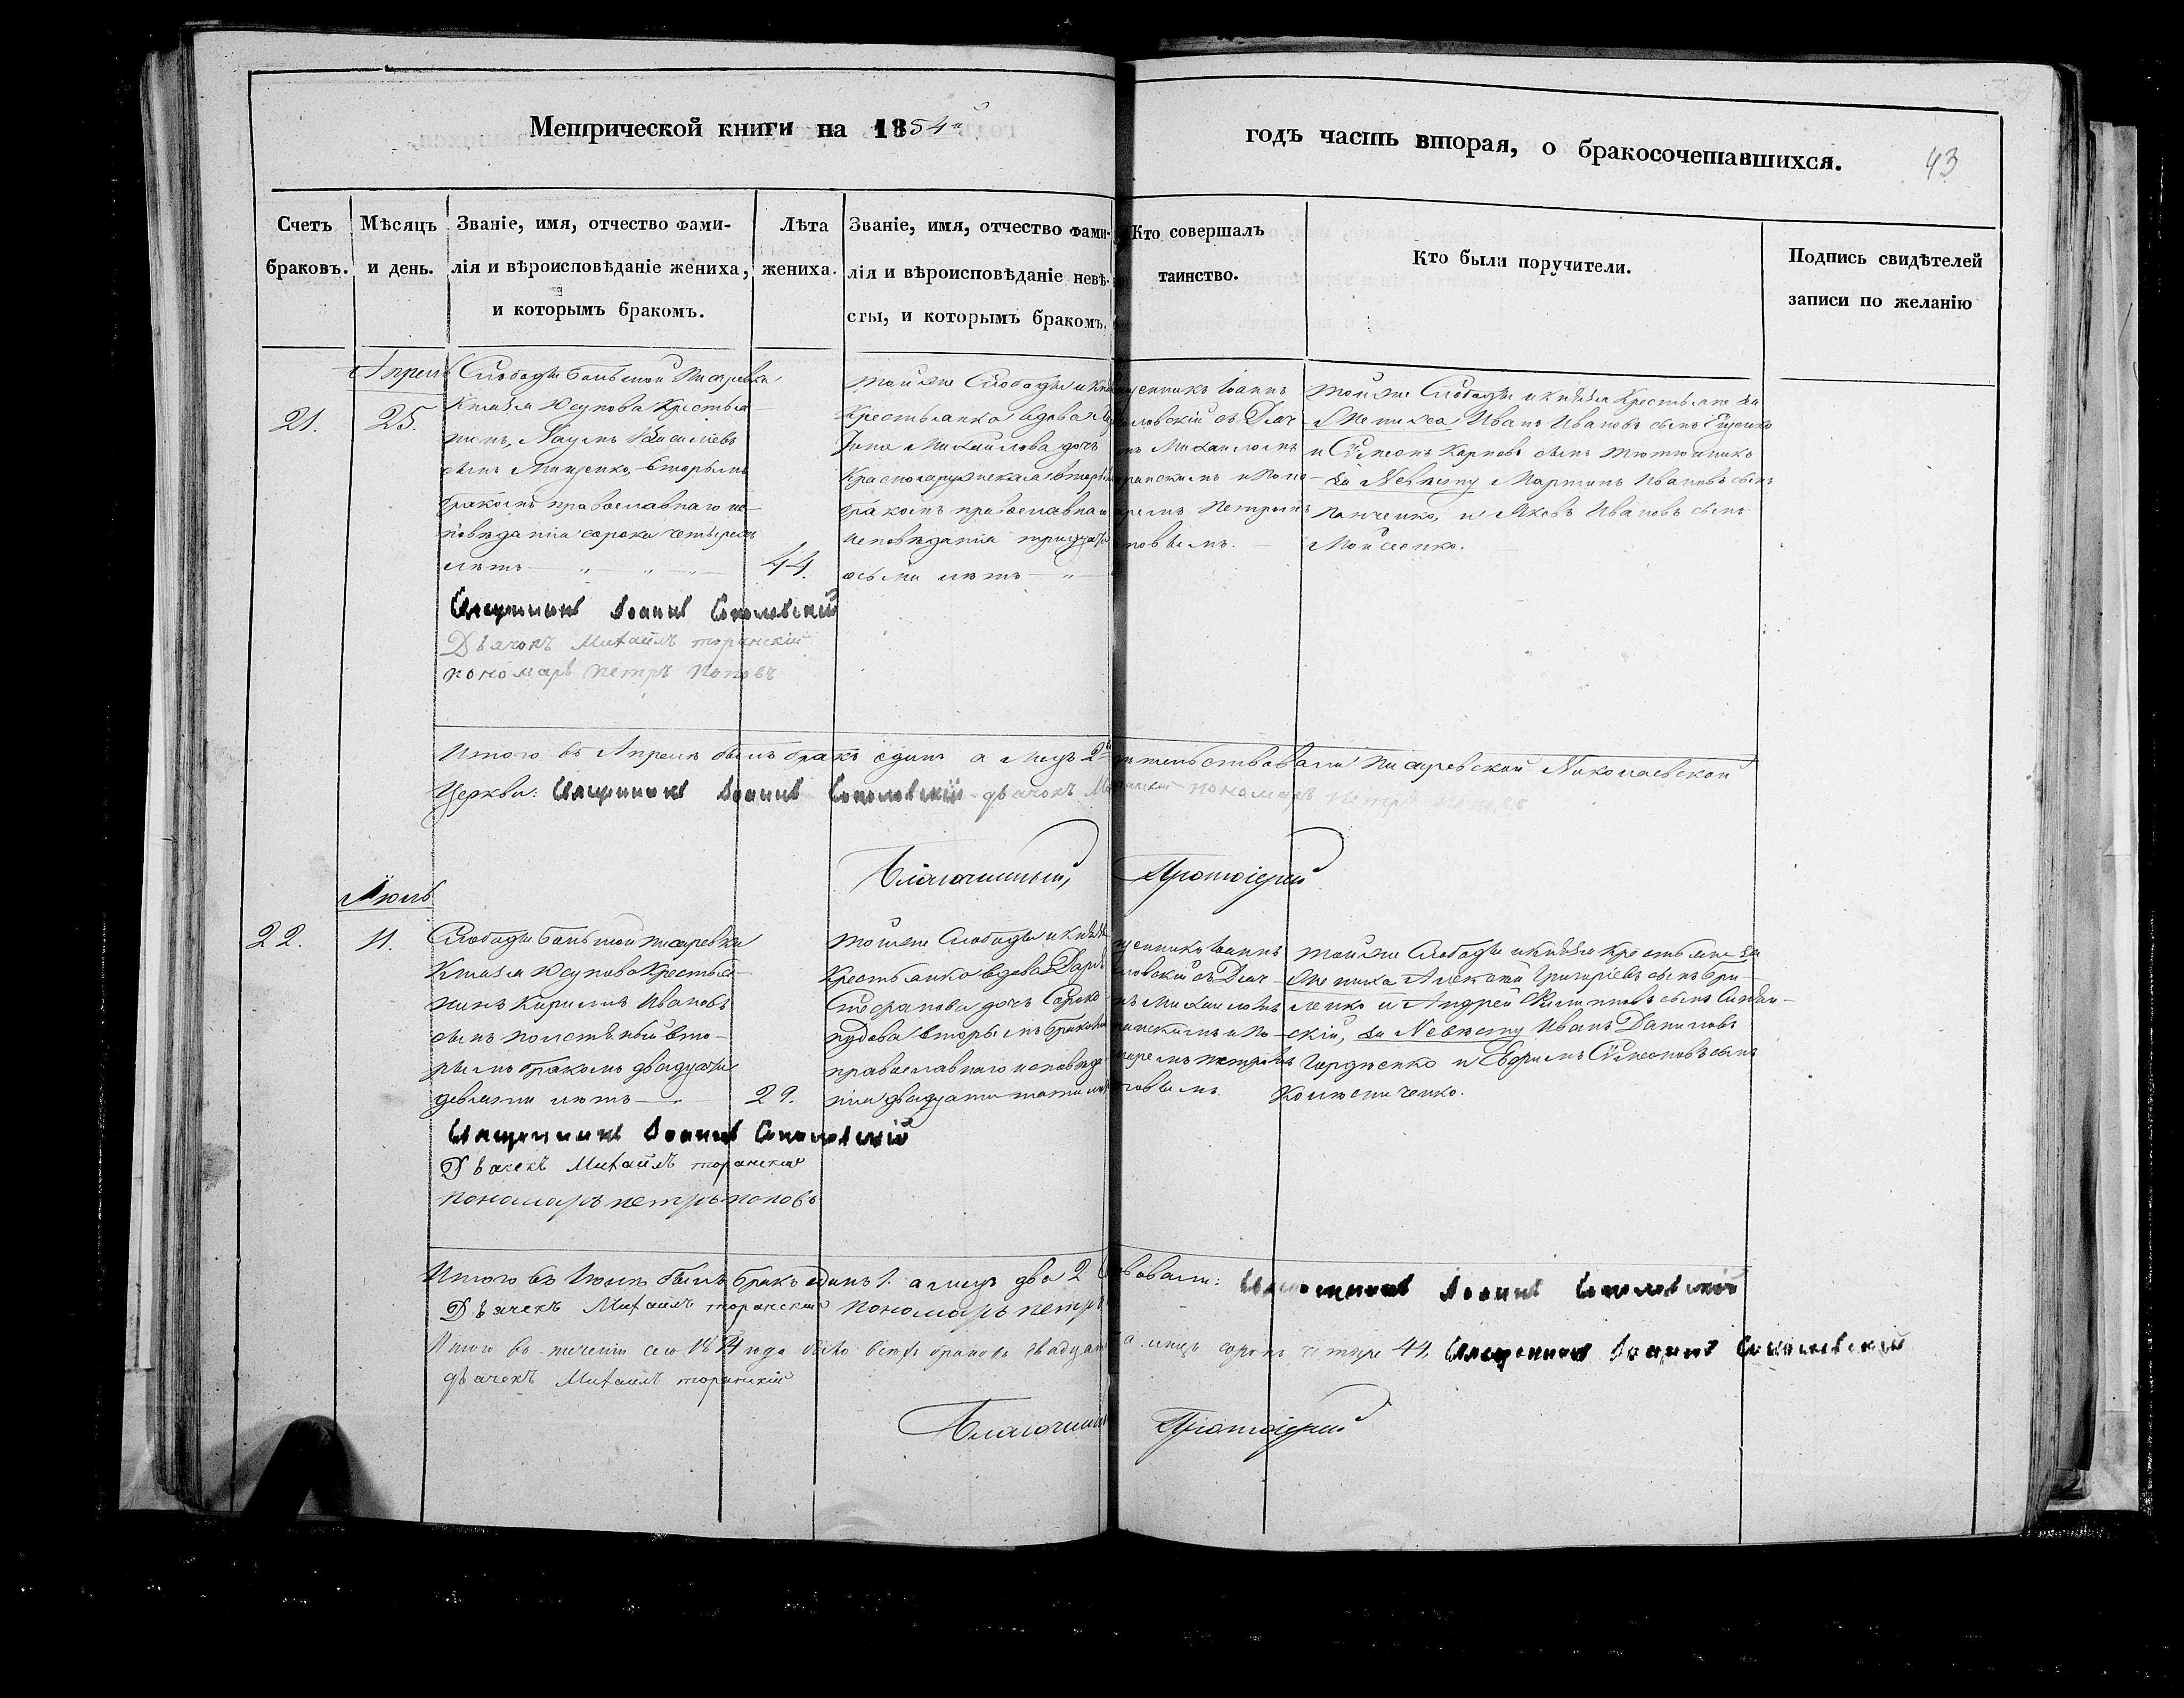 Метрической книги на 1854й
годъ часть вторая, о бракосочетавшихся.
43
Счетъ браковъ.
Мѣсяцъ и день.
Званіе, имя, отчество фами-
лія и вѣроисповѣданіе жениха,
и которымъ бракомъ.
Лѣта жениха.
Званіе, имя, отчество фами-
лія и вѣроисповѣданіе невѣ-
сты, и которымъ бракомъ.
Кто совершалъ
таинство.
Кто были поручители.
Подпись свидѣтелей
записи по желанію
21.
Апрель
25.
Слободы большой Писаревки
Князя Юсупова Крестья-
нинъ, Наумъ Василіевъ
сынъ Мищенко, вторымъ
бракомъ православнаго ис-
повѣданія сорока четырехъ
лѣтъ
44.
той же Слободы и Кня
Крестьянка вдова
Михайлова дочь
бракомъ православнаго
исповѣданія тридцати
осьми лѣтъ
щенникъ Іоаннъ
оловскій съ Дяч
мъ Михаиломъ
ранскимъ и Поно
аремъ Петромъ
повымъ.
той же Слободы и Князя Крестьяне за
Жениха Иванъ Ивановъ сынъ
и Сѵмеонъ Карповъ сынъ Тютюнникъ
за Невѣсту Мартинъ Ивановъ сынъ
Панченко, и Яковъ Ивановъ сынъ
Мойсенко.
Священникъ Іоаннъ Соколовскій
Дьячокъ Михаилъ торанскій
пономарь петръ поповъ
Итого въ Апрелѣ былъ бракъ одинъ а лицъ 2
ительствовали Писаревской Николаевской
Церкви: Священникъ Іоаннъ Соколовскій дьячокъ
пономарь петръ поповъ
Благочинный, Протоіерей
22.
Іюль
11.
Слободы большой писаревки
Князя Юсупова Крестья-
нинъ Кирилъ Ивановъ
сынъ вто-
рымъ бракомъ двадцати
девяти лѣтъ
29.
той же Слободы и Князя
Крестьянка вдова Дарья
Стефанова дочь Сороко
пудова вторымъ бракомъ
православнаго исповѣда
нія двадцати
щенникъ Іоаннъ
ловскій съ Дяч
мъ Михаиломъ
ранскимъ и По-
маремъ петромъ
повымъ.
той же Слободы и Князя Крестьяне за
Жениха Алексѣй Григоріевъ сынъ Гри-
ленко и Андрей Филиповъ сынъ
скій, за Невѣсту Иванъ Даниловъ
Гордіенко и Ефримъ Сѵмеоновъ сынъ
Колесниченко.
Священникъ Іоаннъ Соколовскій
Дьячекъ Михаилъ торанскій
пономарь петръ поповъ
Итого въ Іюлѣ былъ бракъ одинъ 1. а лицъ два 2
вовали: Священникъ Іоаннъ Соколовскій
Дьячекъ Михаилъ торанскій пономарь петръ
Итого въ теченіи сего 1854 года было всѣхъ браковъ двадцат
а лицъ сорокъ четыре 44, Священникъ Іоаннъ Соколовскій
дьячекъ Михаилъ торанскій
Благочинный Протоіерей